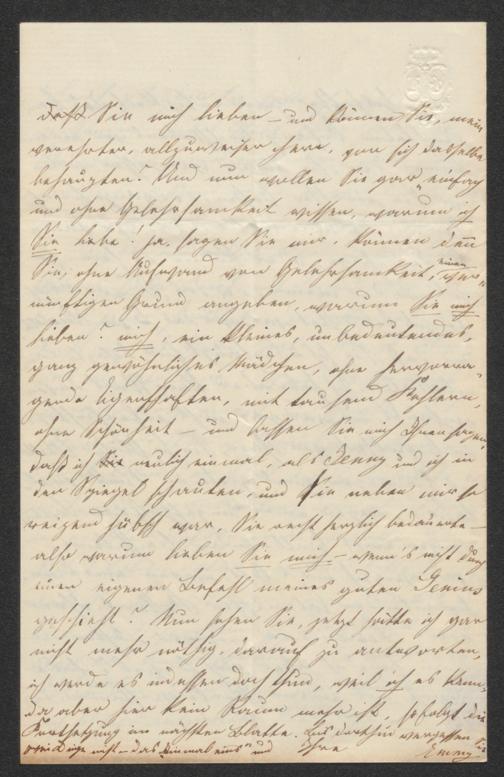 daß Sie mich lieben – und können Sie, mein
verehrter, allzuweiser Herr, von sich dasselbe
behaupten? Und nun wollen Sie gar einfach
und ohne Gelehrsamkeit wissen, warum ich
Sie liebe! Ja, sagen Sie mir, können denn
Sie, ohne Aufwand von Gelehrsamkeit, einen ver-
nünftigen Grund angeben, warum Sie mich
lieben? mich, ein kleines, unbedeutendes,
ganz gewöhnliches Mädchen, ohne hervorra-
gende Eigenschaften, mit tausend Fehlern,
ohne Schönheit – und lassen Sie mich Ihnen sagen,
daß ich Sie neulich einmal, als Jenny und ich in
den Spiegel schauten, und sie neben mir so
reizend hübsch war, Sie recht herzlich bedauerte –
also warum lieben Sie mich – wenn's nicht durch
einen eigenen Befehl meines guten Genius
geschieht? Nun sehen Sie, jetzt hätte ich gar
nicht mehr nöthig, darauf zu antworten,
ich werde es indessen doch thun, weil ich es kann,
da aber hier kein Raum mehr ist, so folgt die
Fortsetzung im nächsten Blatte. Bis dorthin vergessen Sie
nicht – das "Einmal eins" und Ihre Emmy